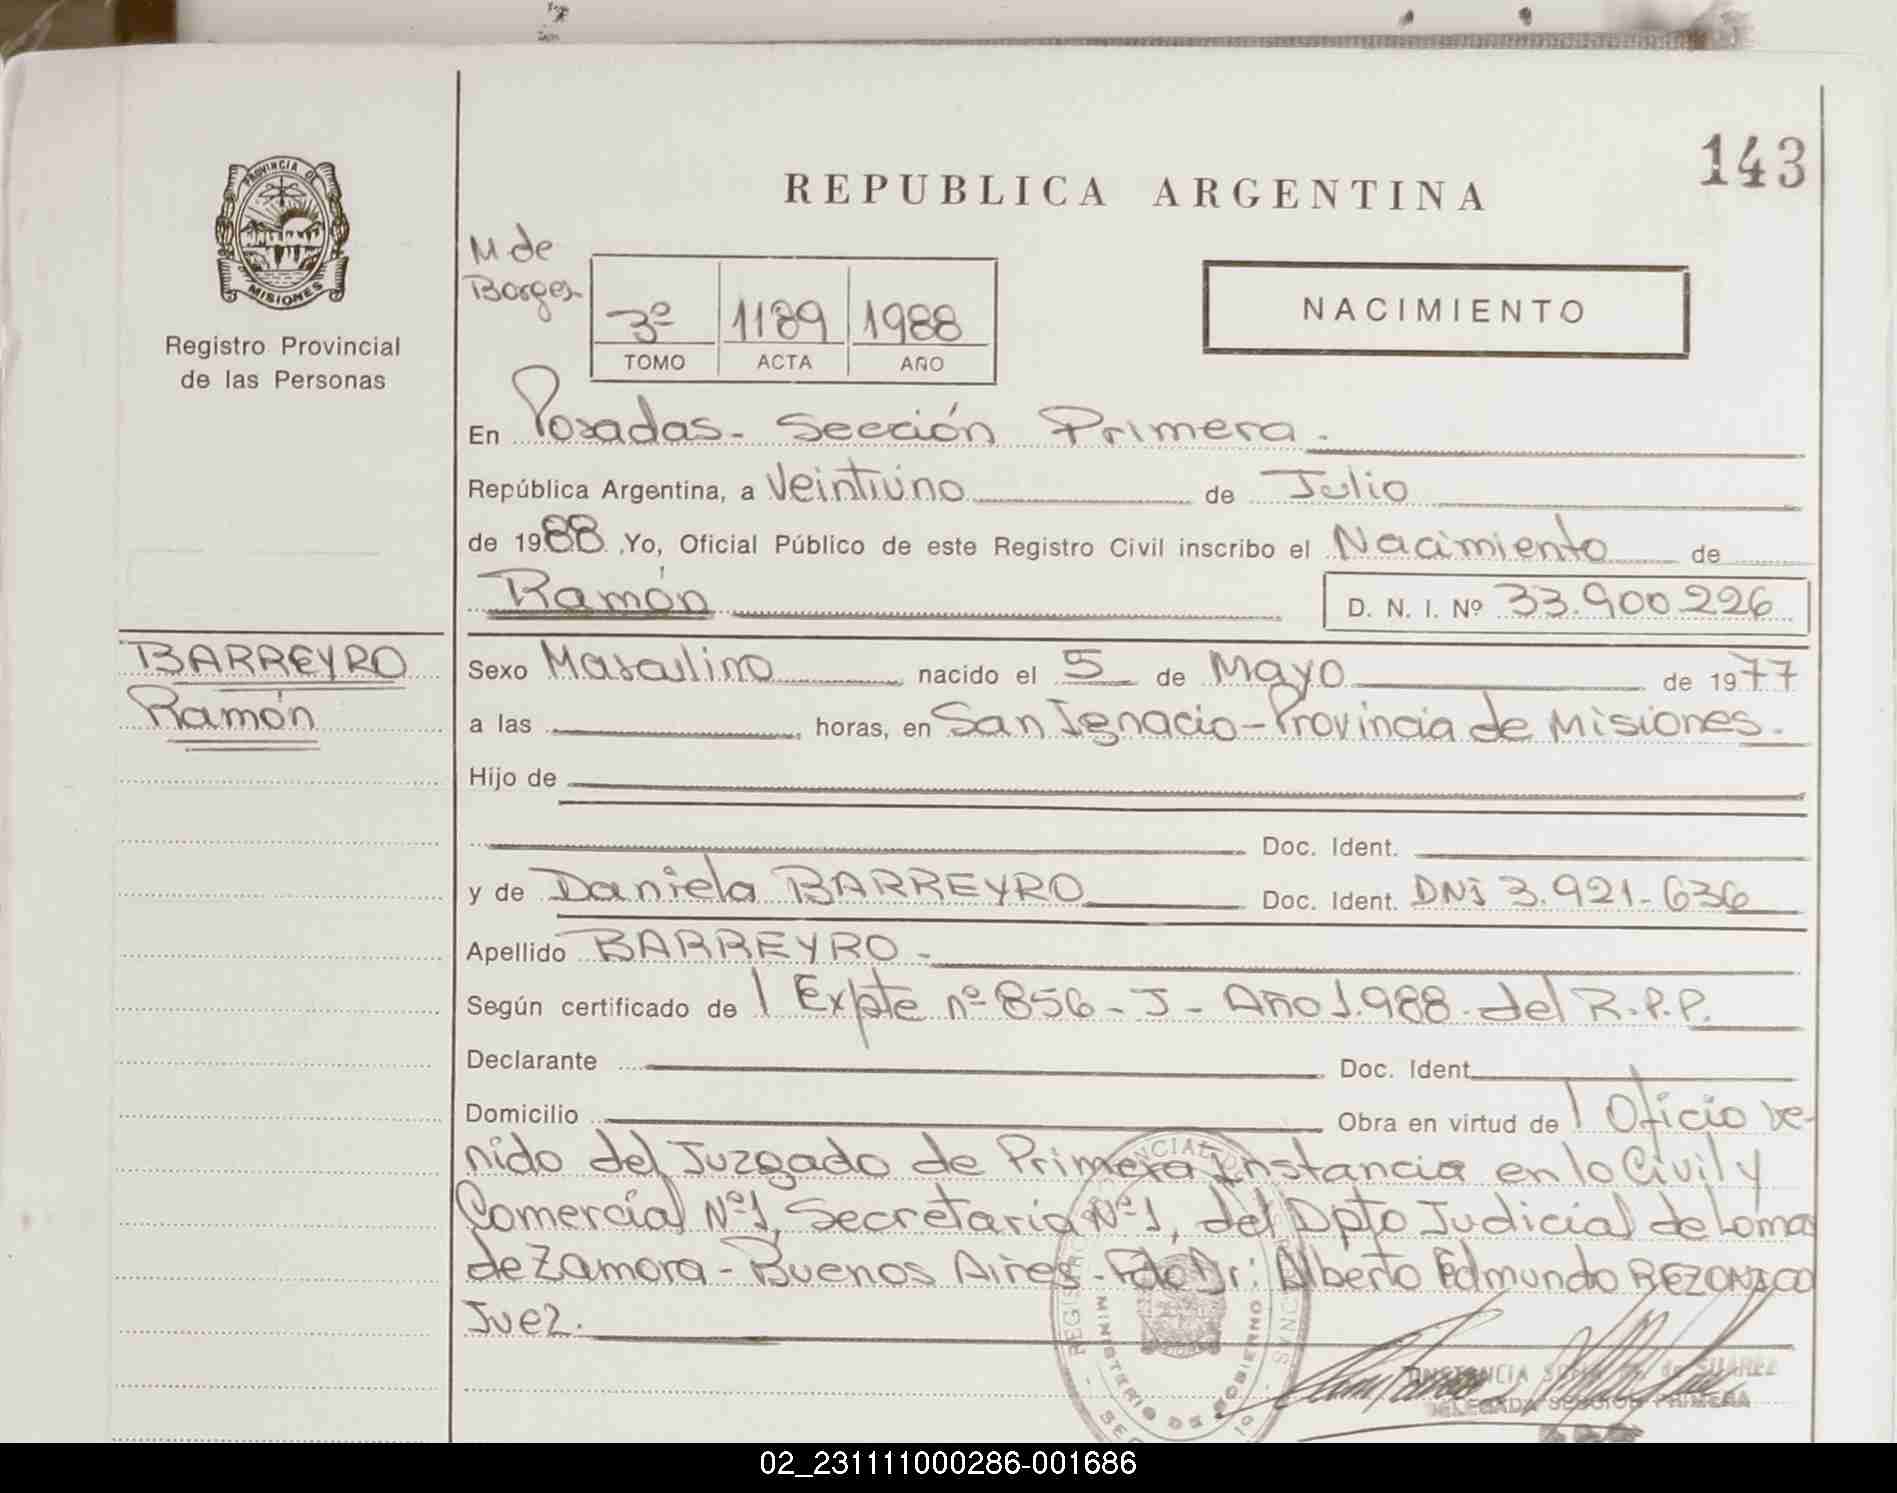 143
PROVINCIA DE
MISIONES
Registro Provincial
de las Personas
REPUBLICA ARGENTINA
M de
Borges
3º 1189 1988
TOMO ACTA AÑO
NACIMIENTO
En Posadas - Sección Primera.
República Argentina, a Veintiuno de Julio
de 1988. Yo, Oficial Público de este Registro Civil inscribo el Nacimiento de
Ramón D. N. I. Nº 33.900.226
BARREYRO
Ramón
Sexo Masculino nacido el 5 de Mayo de 1977
a las horas, en San Ignacio - Provincia de Misiones.
Hijo de
Doc. Ident.
y de Daniela BARREYRO Doc. Ident. DNi 3.921.636
Apellido BARREYRO -
Según certificado de 1 Expte nº 856 - J - Año 1.988 - del R.P.P.
Declarante Doc. Ident.
Domicilio Obra en virtud de 1 Oficio ve-
nido del Juzgado de Primera Instancia en lo Civil y
Comercial Nº 1, Secretaria Nº 1, del Dpto Judicial de Loma
de Zamora - Buenos Aires - Fdo Dr: Alberto Edmundo REZONICO
Juez.
MINISTERIO DE GOBIERNO
SUAREZ
DELEGADA SECCION PRIMERA
02_231111000286-001686